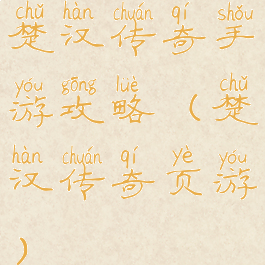 chǔ hàn chuán qí shǒu
楚汉传奇手
yóu gōng lüè chǔ
游攻略（楚
hàn chuán qí yè yóu
汉传奇页游
）